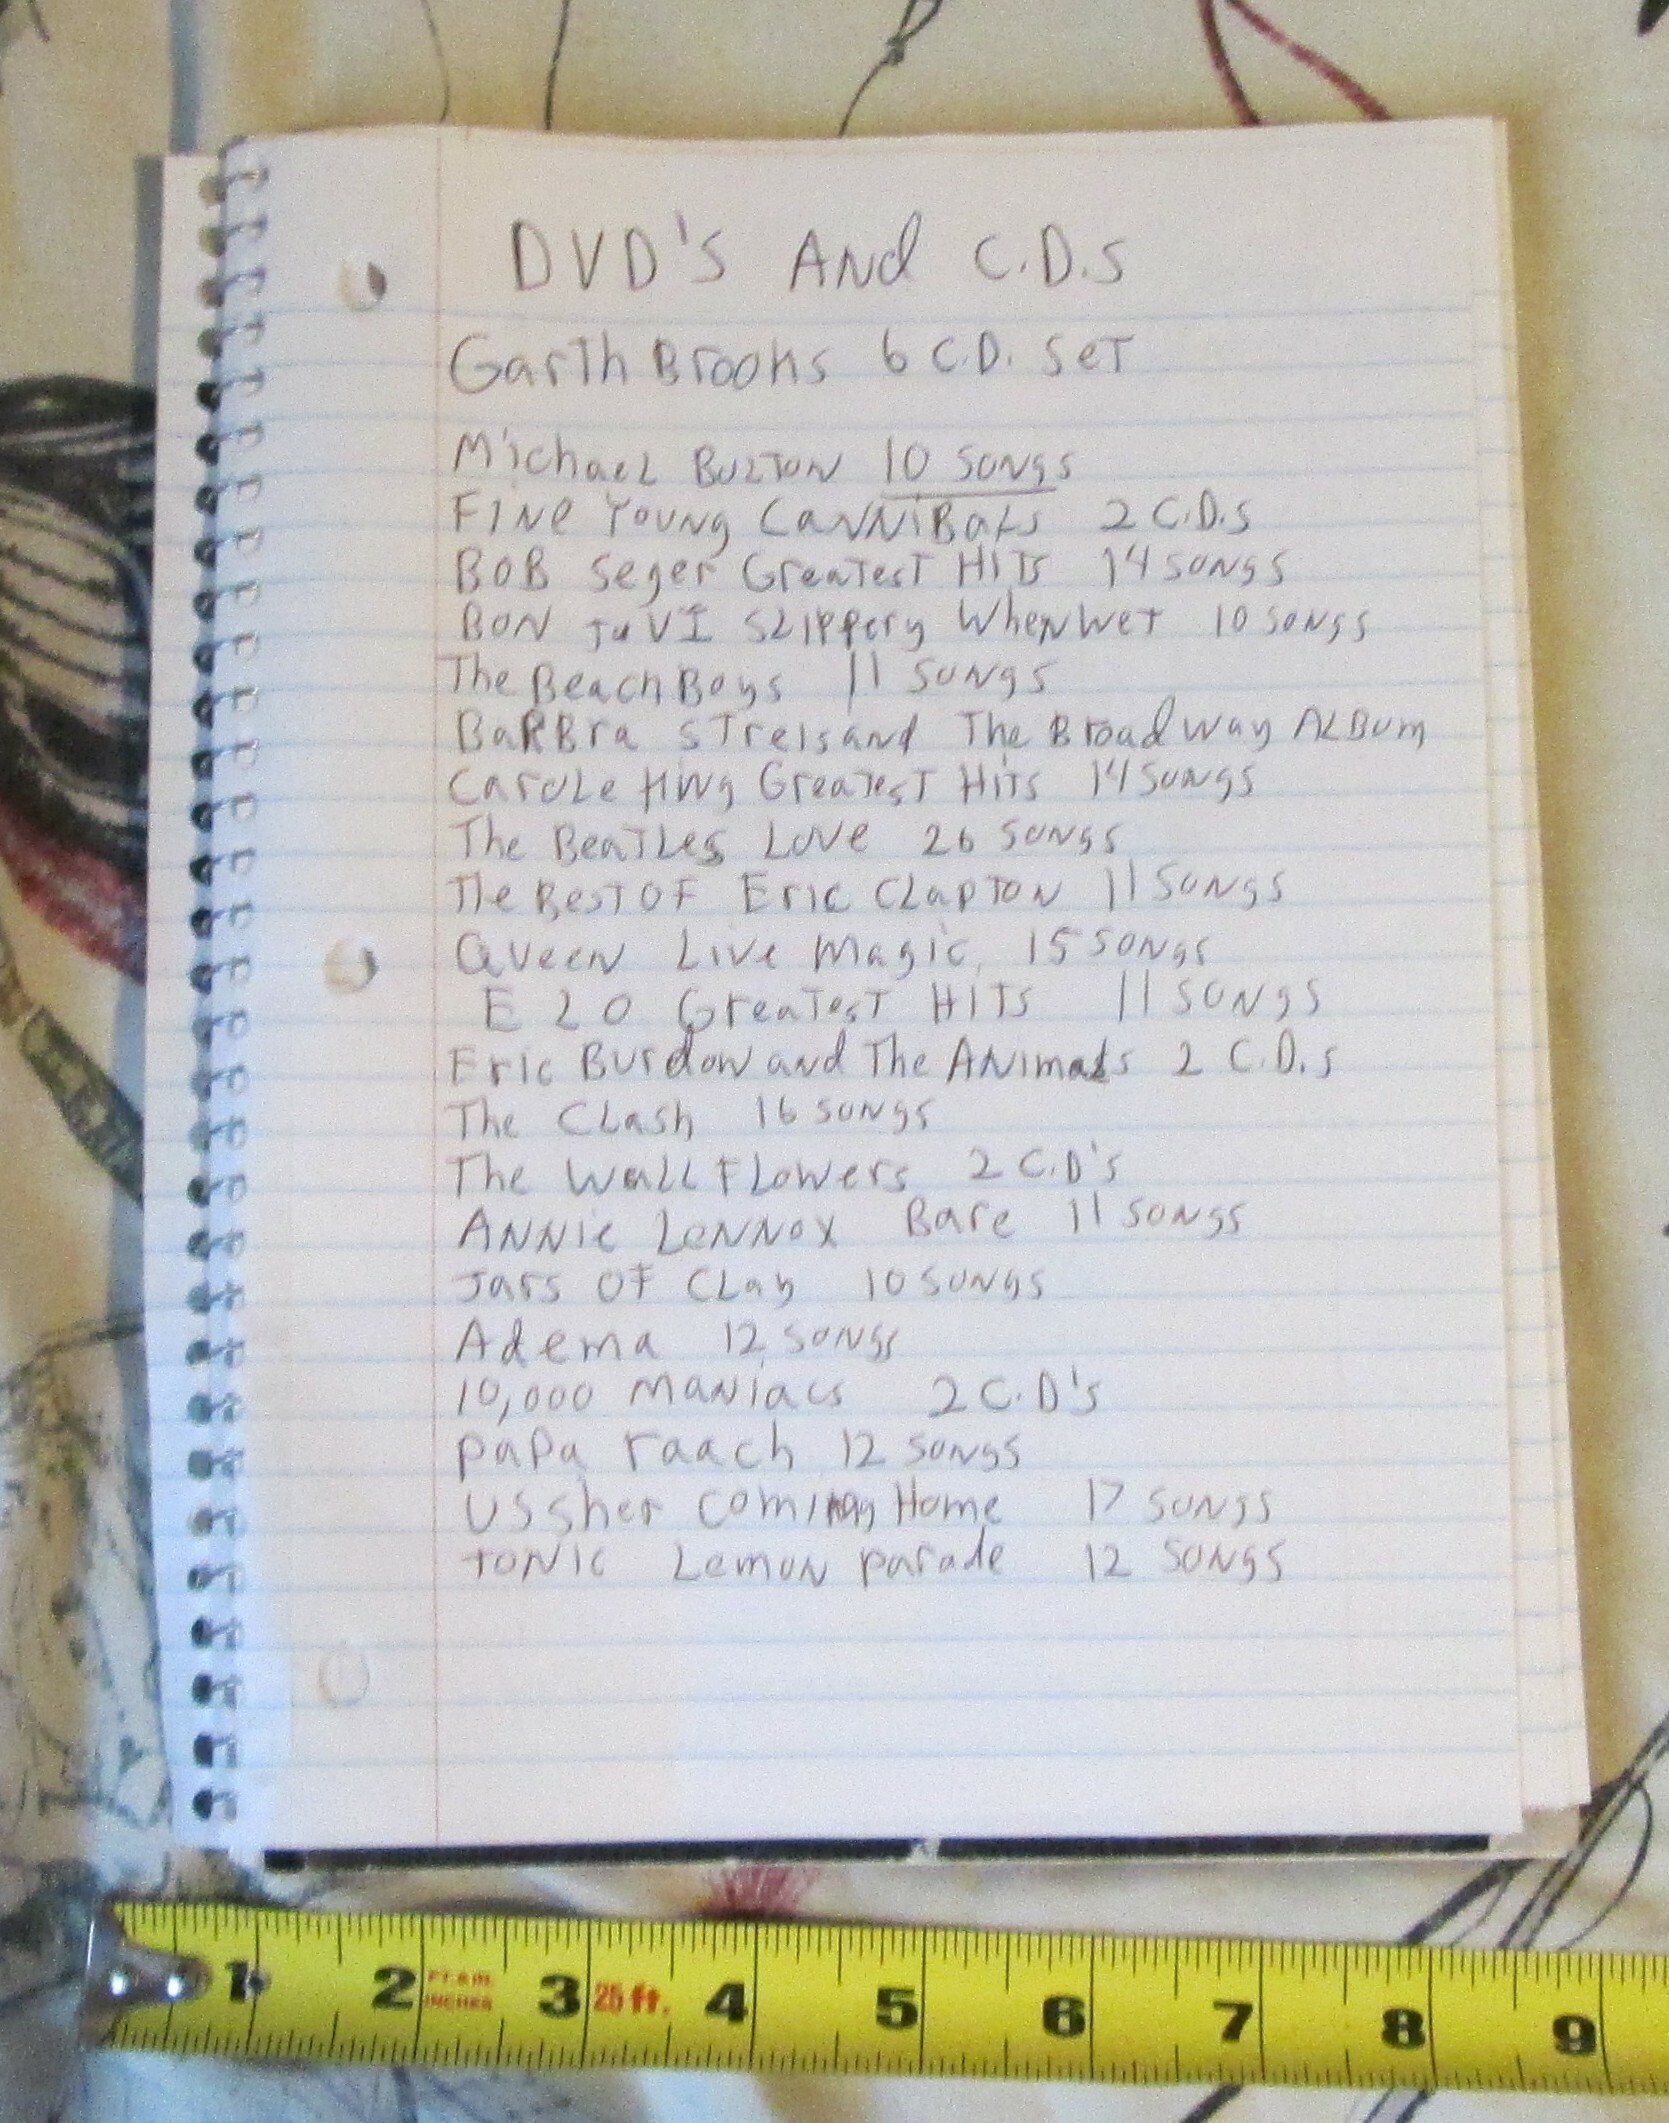 DVD's And C.D.s
Garth Brooks 6 C.D. Set
Michael Bolton 10 songs
Fine Young Cannibals 2 C.D.s
BOB Seger Greatest Hits 14 songs
BON JOVI Slippery When Wet 10 songs
The Beach Boys 11 songs
BarBra Streisand The Broadway Album
Carole King Greatest Hits 14 songs
The Beatles Love 26 songs
The Best Of Eric Clapton 11 songs
Queen Live Magic, 15 songs
E L O Greatest Hits 11 songs
Eric Burdon and The Animals 2 C.D.s
The Clash 16 songs
The Wall Flowers 2 C.D's
Annie Lennox Bare 11 songs
Jars Of Clay 10 songs
Adema 12 songs
10,000 Maniacs 2 C.D's
papa raach 12 songs
Ussher Coming Home 17 songs
Tonic Lemon parade 12 songs
1 2 FT. & IN. INCHES 3 25 ft. 4 5 6 7 8 9